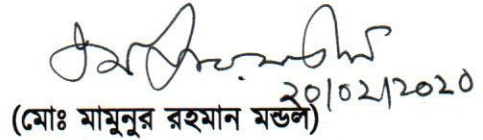 20/02/2020
(মোঃ মামুনুর রহমান মন্ডল)